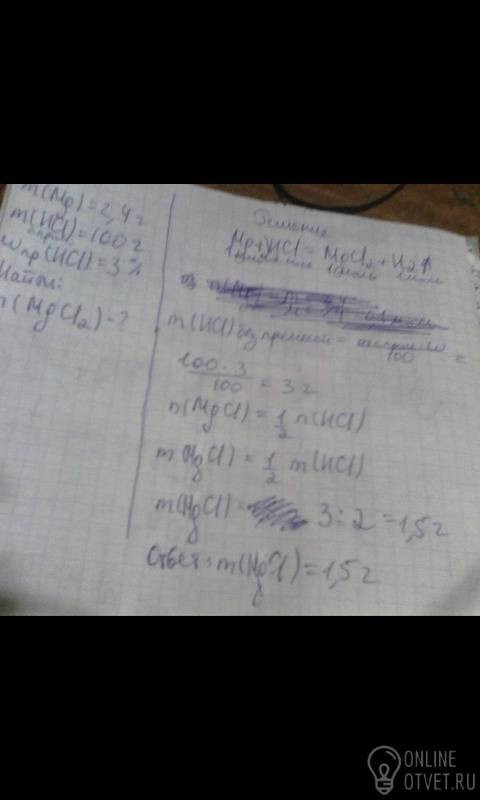 m(Mg) = 2,4 г
m(HCl) = 100 г
wпр(HCl) = 3%
Найти:
m(MgCl₂) - ?
Решение
Mg + HCl = MgCl₂ + H₂↑
1 моль 1 моль
m(HCl) без примеси =
100 =
100 · 3
100 = 3 г
n(MgCl) = 1/2 n(HCl)
m(MgCl) = 1/2 m(HCl)
m(MgCl) = 3 : 2 = 1,5 г
Ответ: m(MgCl) = 1,5 г
ONLINE
OTVET.RU